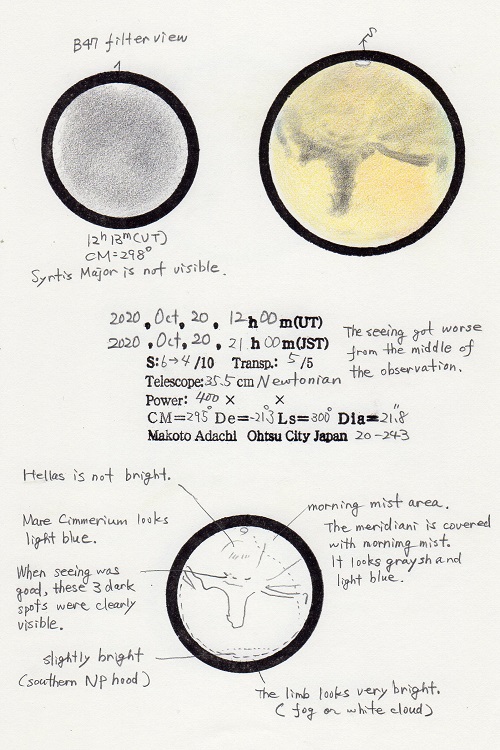 B47 filter view
S
12h 13m(UT)
CM=298°
Syrtis Major is not visible.
2020, Oct, 20, 12h00m(UT)
2020, Oct, 20, 21h00m(JST)
S:6→4/10 Transp.: 5/5
Telescope:35.5cm Newtonian
Power: 400× ×
CM=295° De=-21.3° Ls=300° Dia=21.8"
Makoto Adachi Ohtsu City Japan 20-243
The seeing got worse
from the middle of
the observation.
Hellas is not bright.
Mare Cimmerium looks
light blue.
When seeing was
good, these 3 dark
spots were clearly
visible.
slightly bright
(southern NP hood)
morning mist area.
The meridiani is covered
with morning mist.
It looks graysh and
light blue.
The limb looks very bright.
(fog or white cloud)